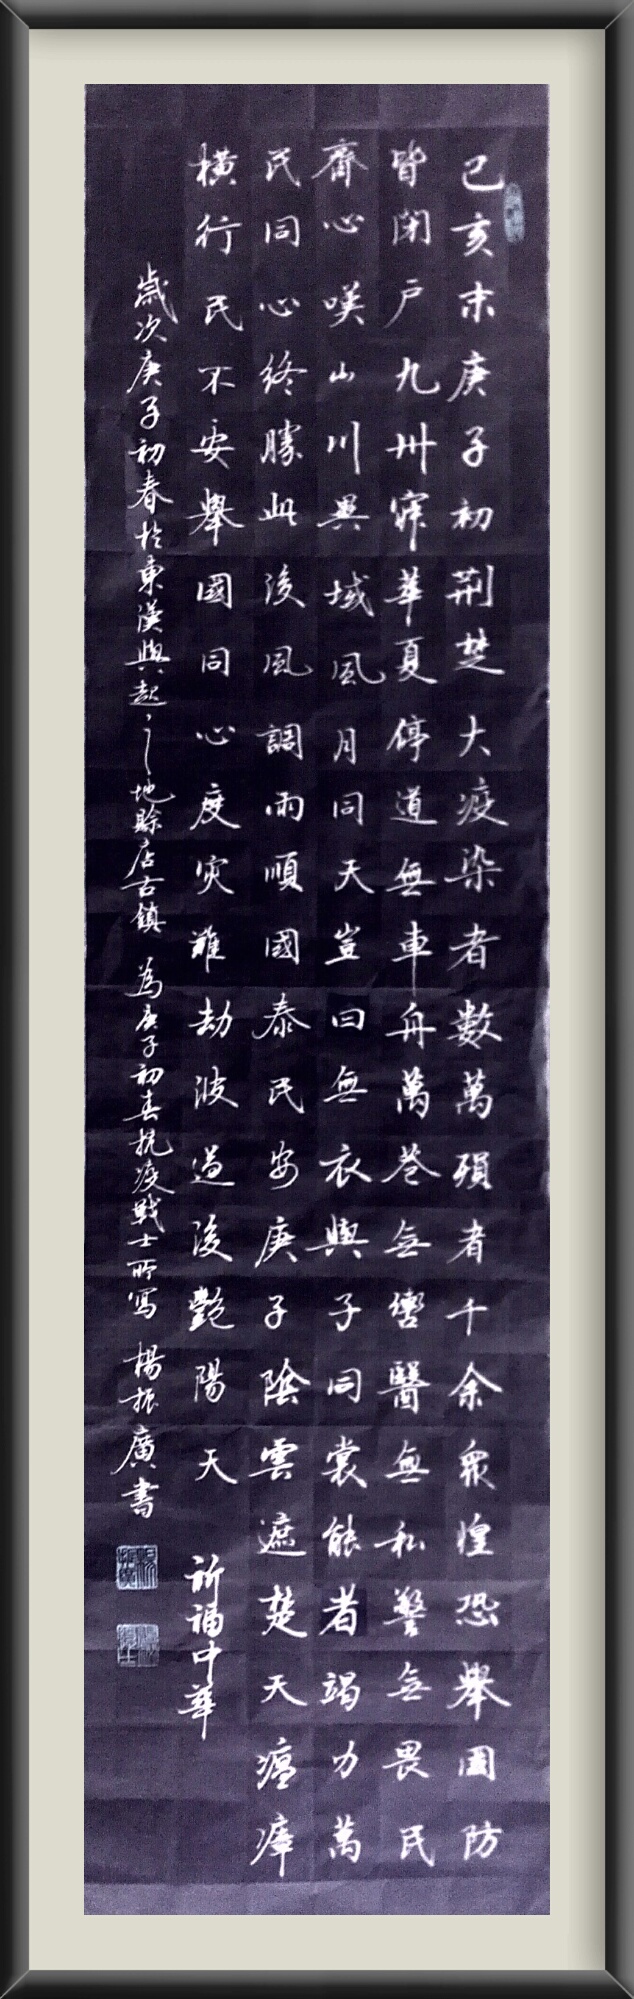 己亥末庚子初荆楚大疫染者數萬殞者千余衆惶恐舉國防
皆閉戶九州寂華夏停道無車舟萬巷無響醫無私警無畏民
齊心嘆山川異域風月同天豈曰無衣與子同裳能者竭力萬
民同心終勝此後風調雨順國泰民安庚子陰雲遮楚天瘟瘴
橫行民不安舉國同心度灾難劫波過後艷陽天
祈福中華
歲次庚子初春於東漢興起之地賒店古鎮 為庚子初春抗疫戰士所寫 楊振廣書